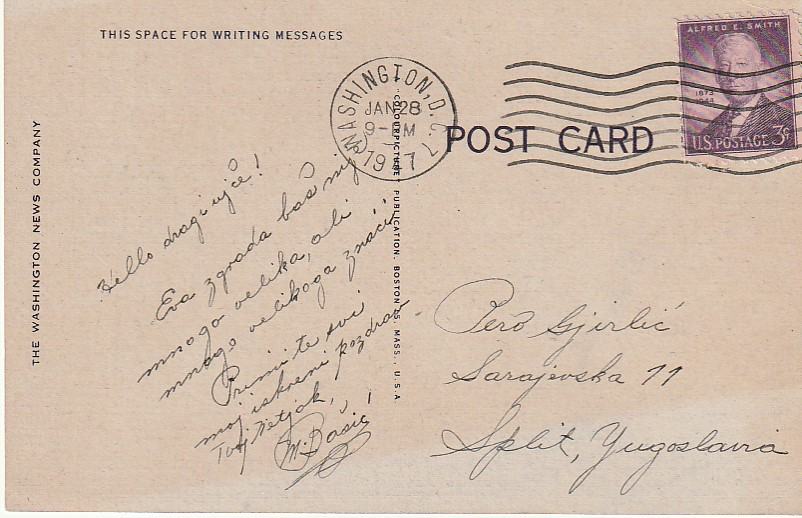 THIS SPACE FOR WRITING MESSAGES
THE WASHINGTON NEWS COMPANY
Hello dragi ujče!
Eva zgrada baš nij
mnogo velika, ali
mnogo velikoga znači
Primite svi
moj iskreni pozdrav
Tvoj Netjak,
M. Bašić!
"COLOURPICTURE" PUBLICATION, BOSTON 15, MASS., U.S.A.
WASHINGTON, D.C.
JAN 28
M
1947
POST CARD
ALFRED E. SMITH
1873
1944
U.S. POSTAGE 3¢
Pero Gjirlić
Sarajevska 11
Split, Yugoslavia